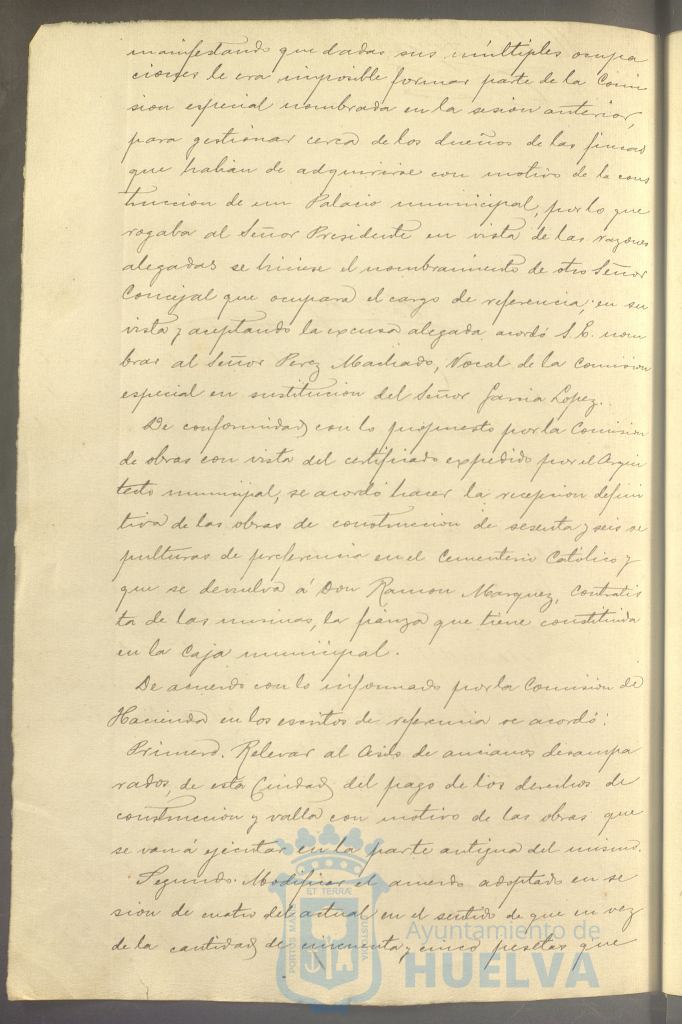 manifestando que dadas sus múltiples ocupa
ciones le era imposible formar parte de la Comi
sion especial nombrada en la sesion anterior,
para gestionar cerca de los dueños de las fincas
que habian de adquirirse con motivo de la cons
truccion de un Palacio municipal, por lo que
rogaba al Señor Presidente en vista de las razones
alegadas se hiciese el nombramiento de otro Señor
Concejal que ocupara el cargo de referencia; en su
vista y aceptando la excusa alegada acordó S. E. nom
brar al Señor Perez Machado, Vocal de la Comision
especial en sustitucion del Señor Garcia Lopez.
De conformidad con lo propuesto por la Comision
de obras con vista del certificado expedido por el Arqui
tecto municipal, se acordó hacer la recepcion defini
tiva de las obras de construccion de sesenta y seis se
pulturas de preferencia en el Cementerio Católico y
que se devuelva á Don Ramon Marquez, contratis
ta de las mismas, la fianza que tiene constituida
en la Caja municipal.
De acuerdo con lo informado por la Comision de
Hacienda en los escritos de referencia se acordó:
Primero. Relevar al Asilo de ancianos desampa
rados, de esta Ciudad, del pago de los derechos de
construccion y valla con motivo de las obras que
se van á ejecutar en la parte antigua del mismo.
Segundo. Modificar el acuerdo adoptado en se
sion de cuatro del actual en el sentido de que en vez
de la cantidad de cincuenta y cinco pesetas que
ET TERRÆ
PORTUS MARIS
CUSTODIA
Ayuntamiento de
HUELVA